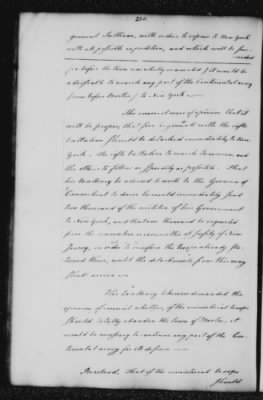 234.
general Sullivan, with orders to repair to New York
with all possible expedition, and which will be suc-
ceeded
fix before the town was totally evacuated if it would be
advisable to march any part of the Continental army
from before Boston to New York —
The council were of opinion that it
will be proper, that five regiments with the rifle
battalion should be detached immediately to New
York. The rifle battalion to march tomorrow and
the others to follow as speedily as possible. That
his Excellency be advised to write to the Governor of
Connecticut to desire he would immediately send
two thousand of the militia of his Government
to New York, and that one thousand be requested
from the convention committee of safety of New
Jersey, in order to reinforce the troops already sta-
tioned there, until the detachments from this army
shall arrive —
His Excellency likewise demanded the
opinion of council whether, if the ministerial troops
should totally abandon the town of Boston, it
would be necessary to continue any part of the Con-
tinental army for its defence —
Resolved, that if the ministerial troops
should